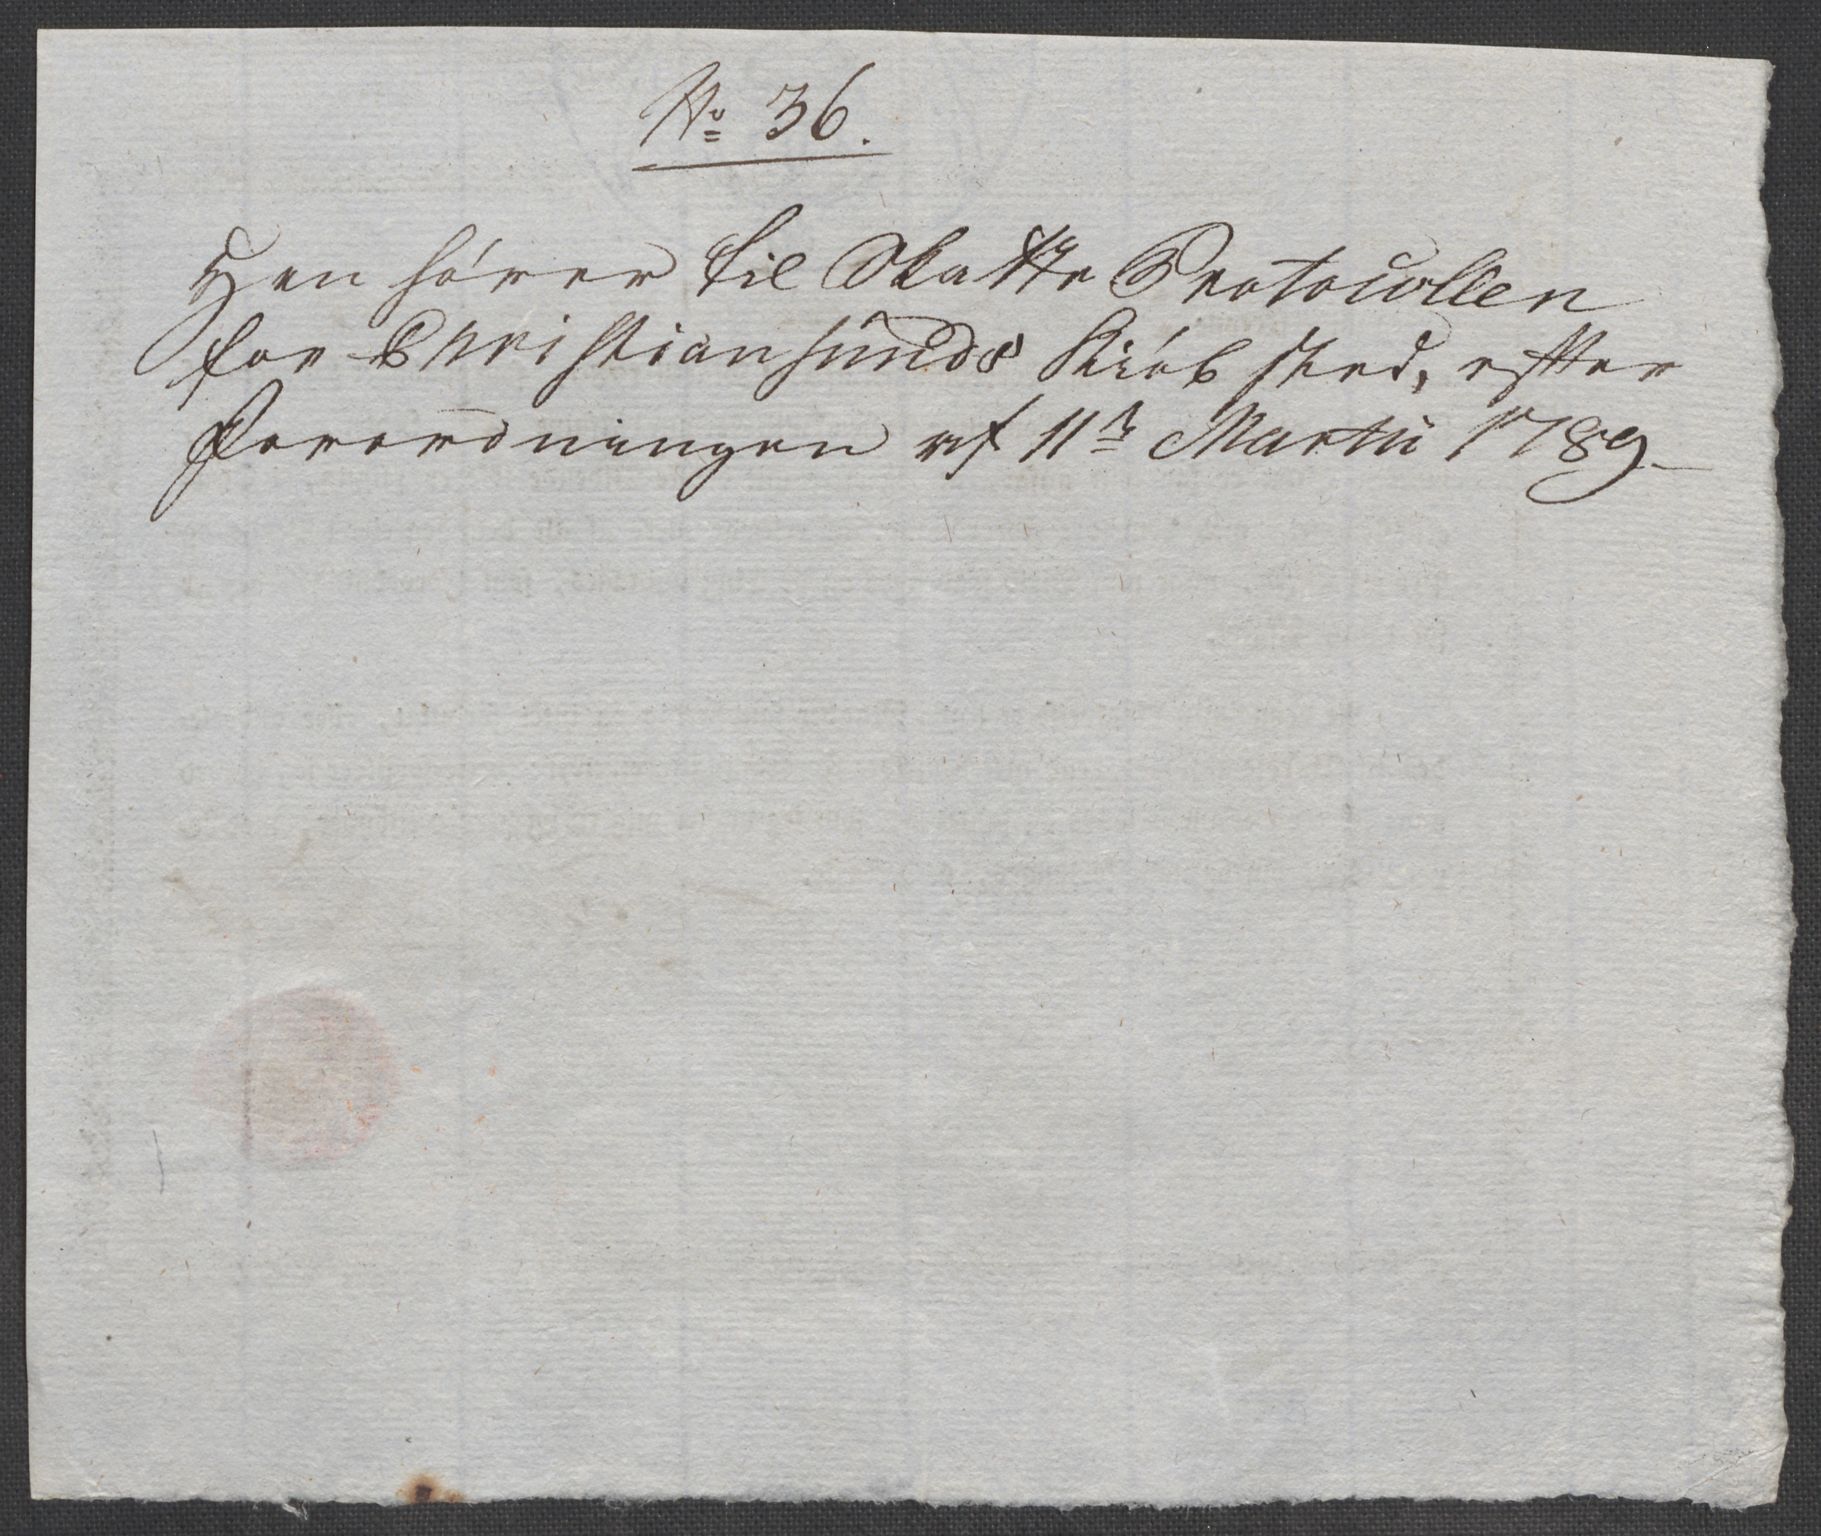 No 36.
Hen hører til Skatte Protocollen
for Christiansunds Kiøbsted, efter
Forordningen af 11te Martii 1789.